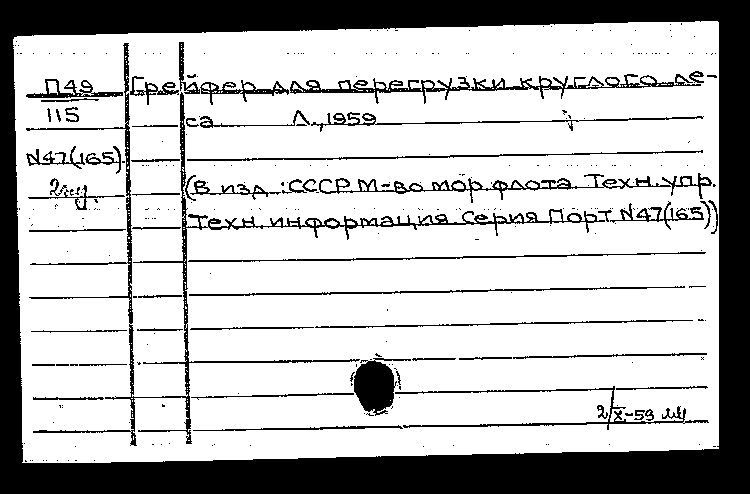 П49
115
N47(165)
Грейфер для перегрузки круглого ле-
са Л., 1959
(В изд.: СССР. М-во мор. флота. Техн. упр.
Техн. информация. Серия Порт N47(165))
2/X-59